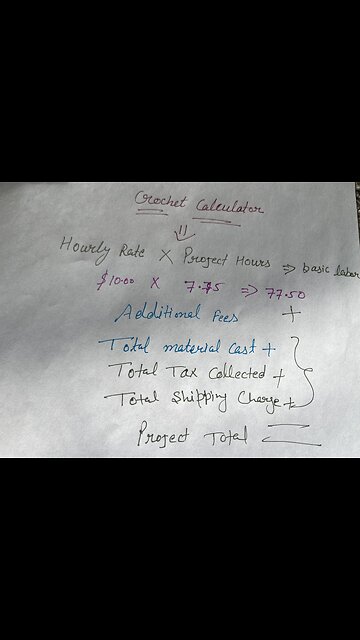 Crochet Calculator
Hourly Rate × Project Hours ⇒ basic labor
$10.00 × 7.75 ⇒ 77.50
Additional Fees +
Total material Cast +
Total Tax Collected +
Total Shipping Charge +
Project Total =